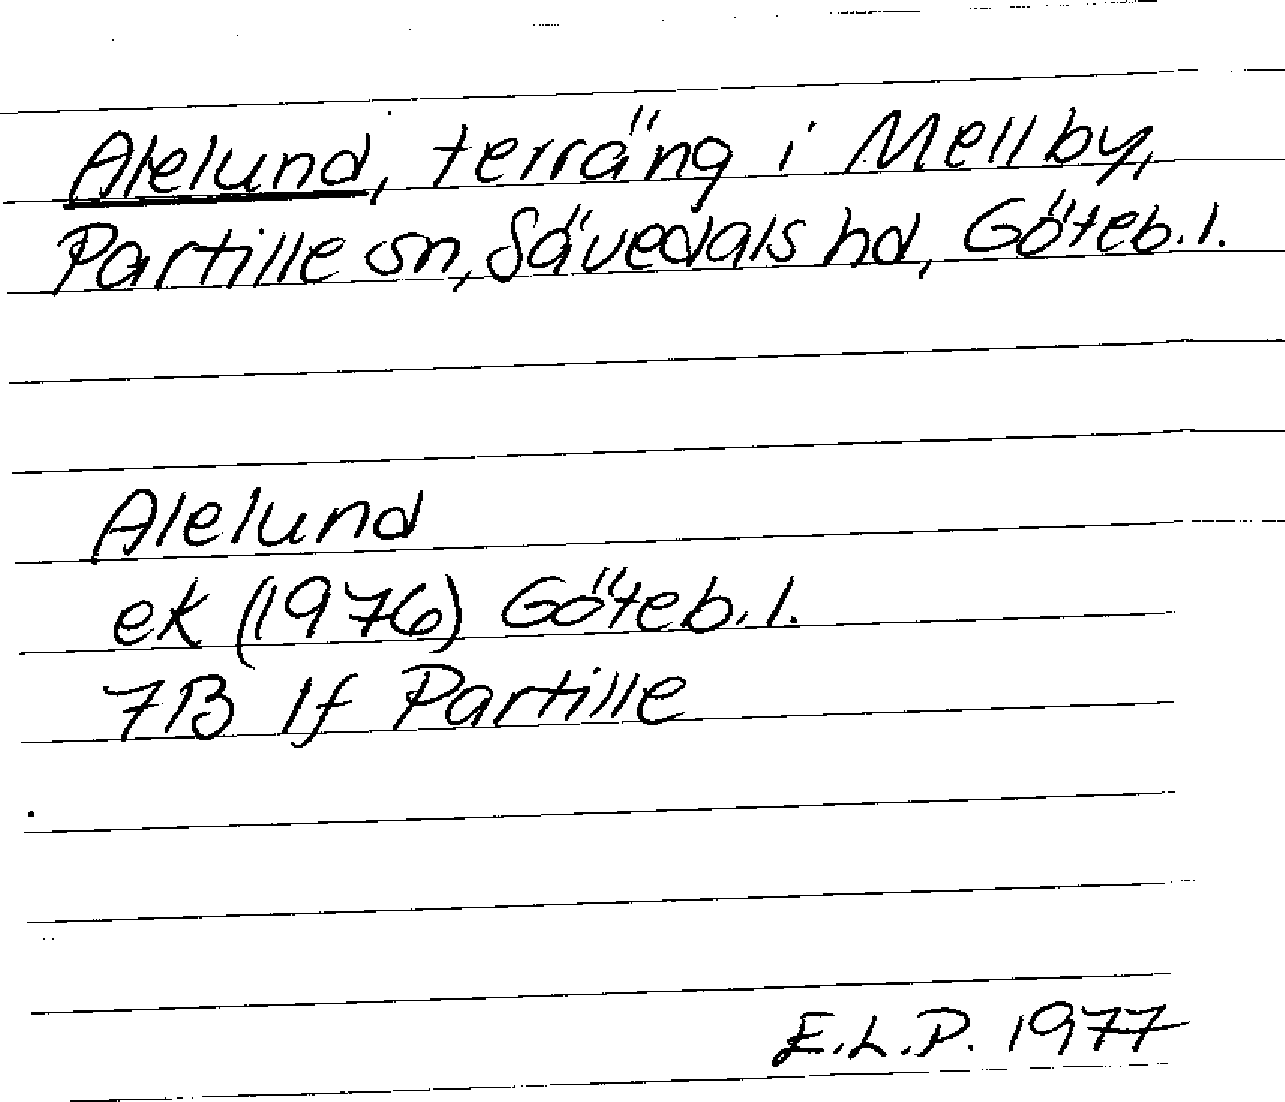 Alelund, terräng i Mellby,
Partille sn, Sävedals hd, Göteb.l.
Alelund
ek (1976) Göteb.l.
7B 1f Partille
E.L.P. 1977